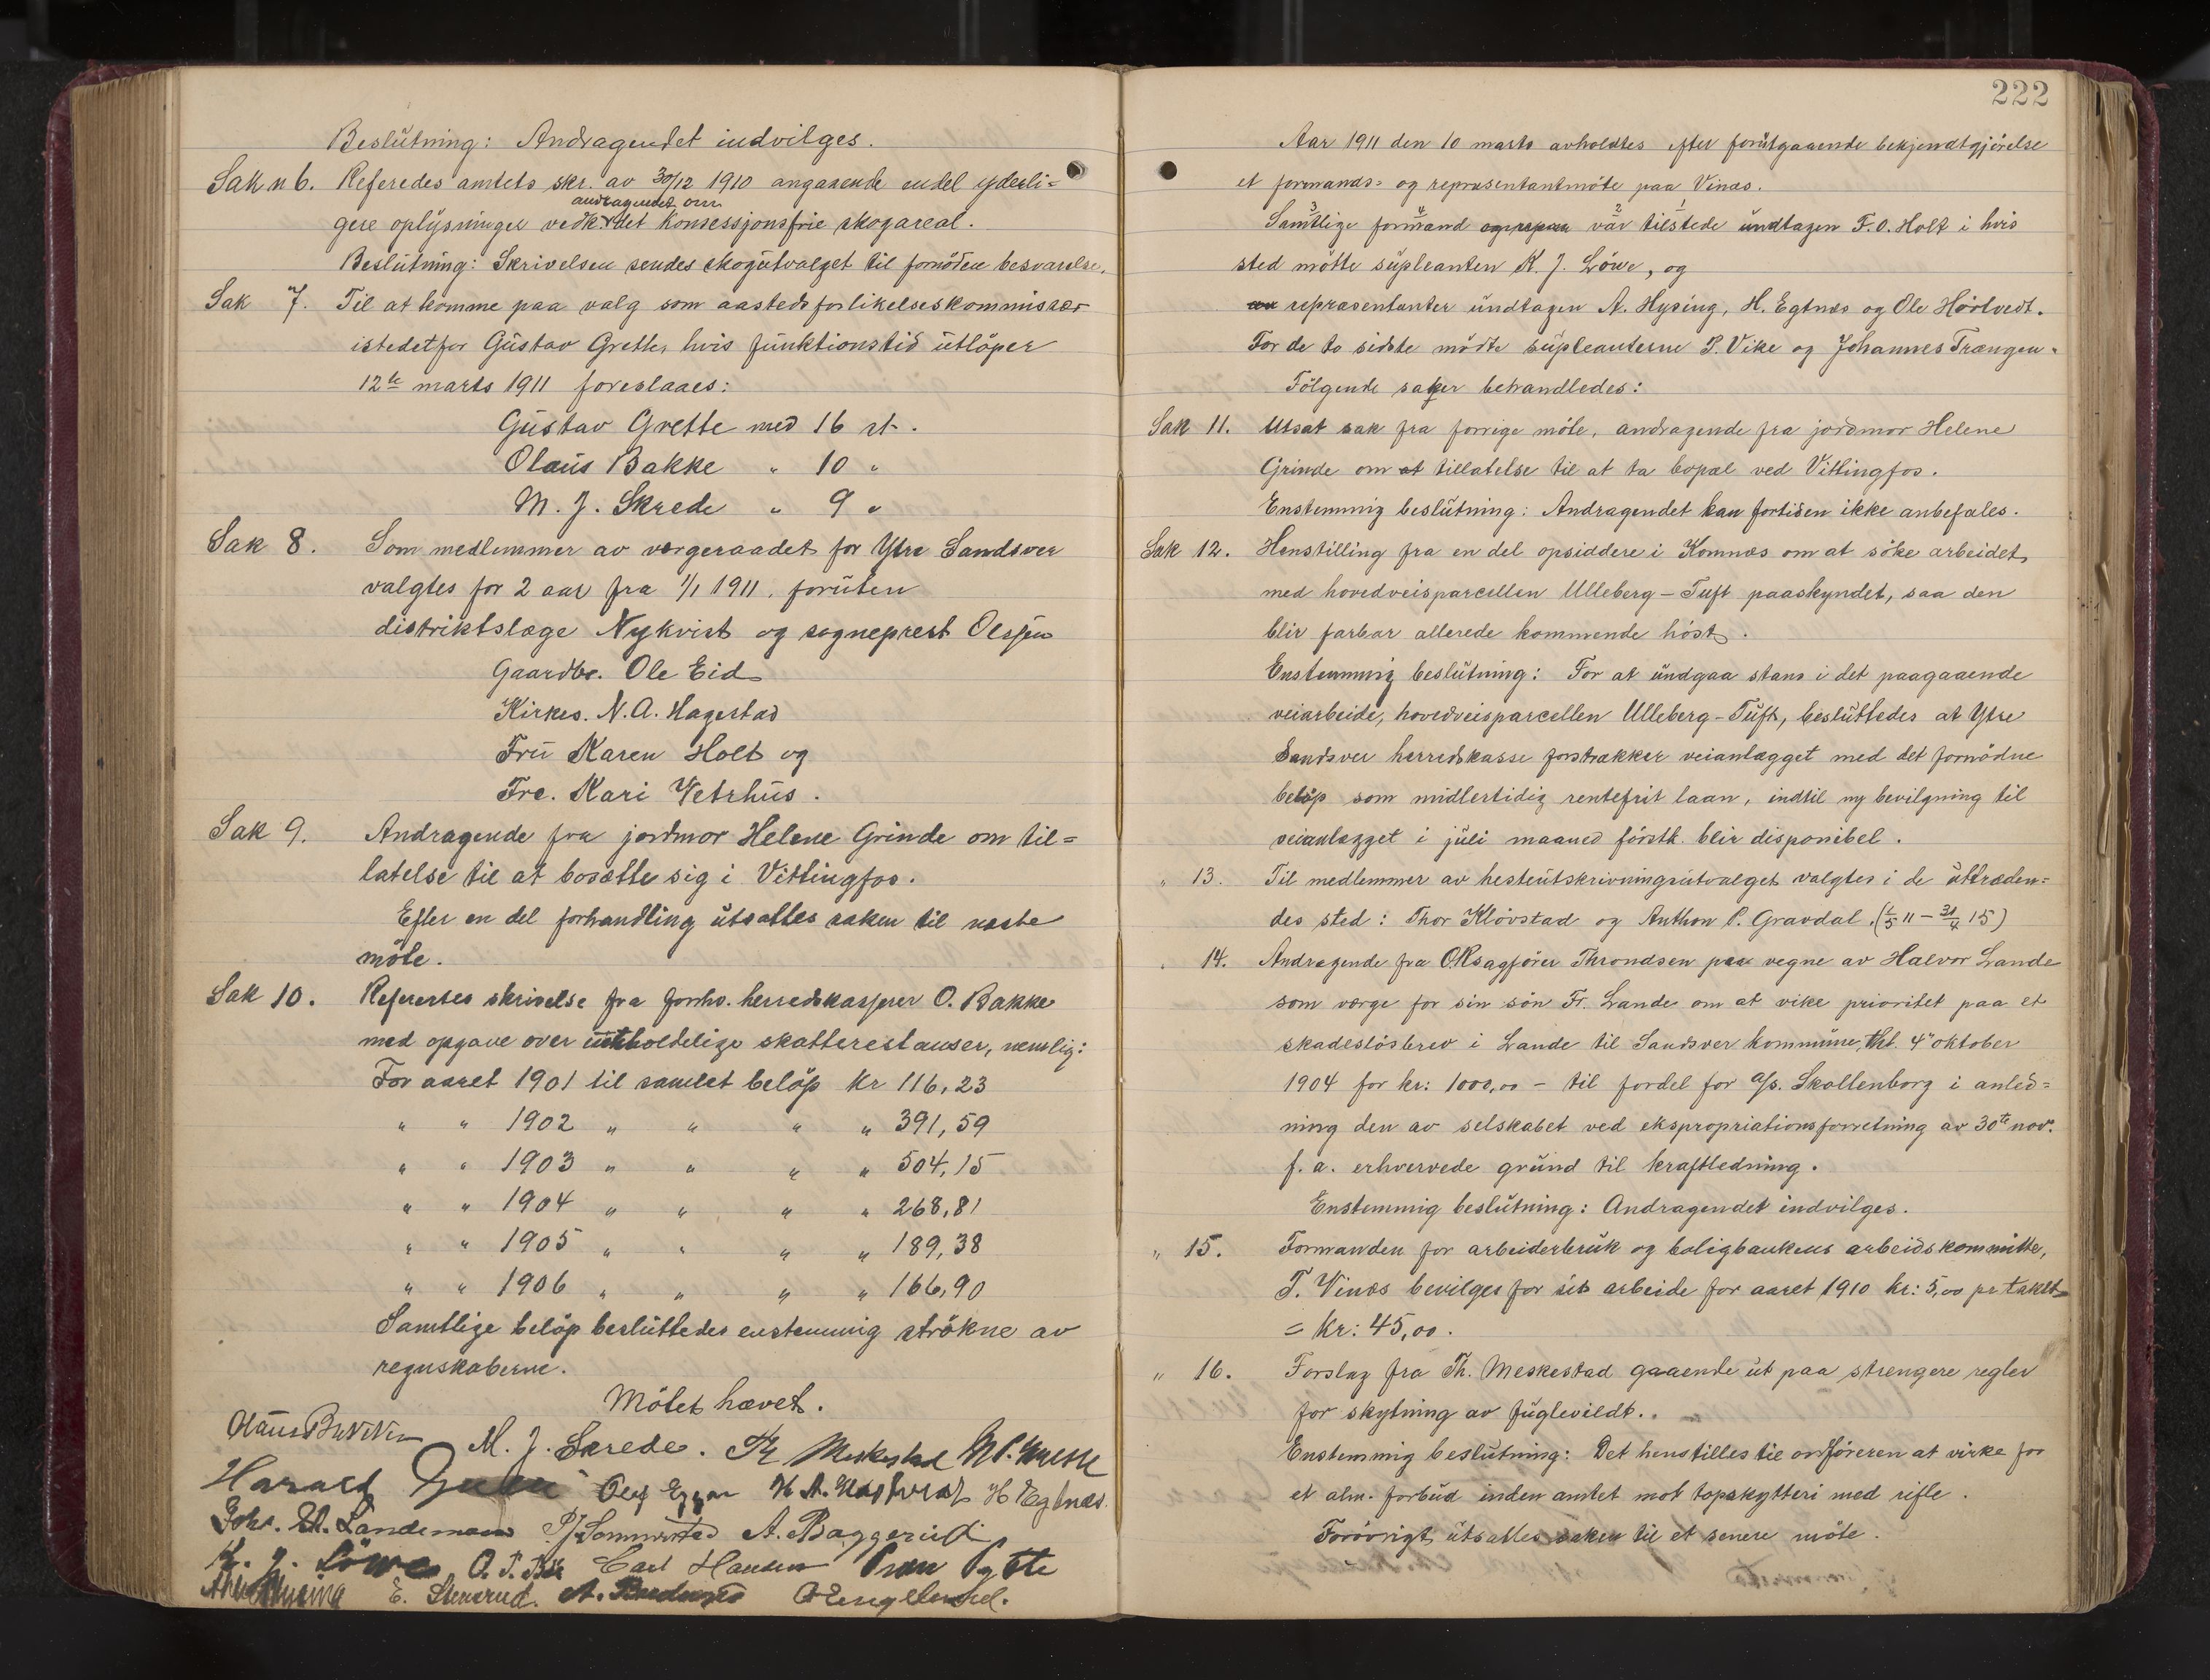 Beslutning: Andragendet indvilges.
Sak n 6. Referedes amtets skr. av 30/12 1910 angaaende endel yderli=
andragendet om
gere oplysninger vedk. det konsessjonsfrie skogareal.
Beslutning: Skrivelsen sendes skogutvalget til fornöden besvarelse.
Sak 7. Til at komme paa valg som aastedsforlikelseskommissær
istedetfor Gustav Grette, hvis funktionstid utlöper
12te marts 1911 foreslaaes:
Gustav Grette med 16 st.
Olaus Bakke " 10 "
M. J. Skrede " 9 "
Sak 8. Som medlemmer av vergeraadet for Ytre Sandsver
valgtes for 2 aar fra 1/1 1911, foruten
distriktslæge Nykvist og sogneprest Olssen
Gaardbr. Ole Eid
Kirkes. N. A. Hagestad
Fru Karen Holt og
Frk. Kari Vetrhus.
Sak 9. Andragende fra jordmor Helene Grinde om til=
latelse til at bosætte sig i Vittingfos.
Efter en del forhandling utsattes saken til næste
möte.
Sak 10. Referertes skrivelse fra forrhv. herredskasserer O. Bakke
med opgave over uerholdelige skatterestanser, nemlig:
For aaret 1901 til samlet belöp kr 116,23
" " 1902 " " " " 391,59
" " 1903 " " " " 504,15
" " 1904 " " " " 268,81
" " 1905 " " " " 189,38
" " 1906 " " " " 166,90
Samtlige belöp besluttedes enstemmig strökne av
regnskaberne.
Mötet hævet.
Olaus Bakken M. J. Skrede. Th Meskestad
Harald Olaf H. Egtnæs.
Joh. Landemoen P. J. Sommerstad A. Baggerud
K. J. Löwe Carl Hansen
E. Stensrud. A.
222
Aar 1911 den 10 marts avholdtes efter forutgaaende bekjendtgjörelse
et formands= og repræsentantmöte paa Vinæs.
Samtlige formænd var tilstede undtagen F. O. Holt i hvis
sted mötte supleanten K. J. Löwe, og
repræsentanter undtagen A. Hysing, H. Egtnæs og Ole Hörtvedt.
For de to sidste mödte supleanterne P. Vike og Johannes Trængen.
Fölgende saker behandledes:
Sak 11. Utsat sak fra forrige möte, andragende fra jordmor Helene
Grinde om at tillatelse til at ta bopæl ved Vittingfos.
Enstemmig beslutning: Andragendet kan fortiden ikke anbefales.
Sak 12. Henstilling fra en del opsiddere i Komnæs om at söke arbeidet
med hovedveisparcellen Ulleberg – Tuft paaskyndet, saa den
blir farbar allerede kommende höst.
Enstemmig beslutning: For at undgaa stans i det paagaaende
veiarbeide, hovedveisparcellen Ulleberg – Tuft, besluttedes at Ytre
Sandsver herredskasse forstrækker veianlægget med det fornödne
belöp som midlertidig rentefrit laan, indtil ny bevilgning til
veianlægget i juli maaned förstk. blir disponibel.
" 13. Til medlemmer av hesteutskrivningsutvalget valgtes i de uttræden=
des sted: Thor Klövstad og Anthon P. Gravdal. (1/5 11 – 31/4 15)
" 14. Andragende fra O.R sagförer Throndsen paa vegne av Halvor Lande
som værge for sin sön Fr. Lande om at vike prioritet paa et
skadeslösbrev i Lande til Sandsver kommune, thl. 4" oktober
1904 for kr: 1000,00 – til fordel for A/S. Skollenborg i anled=
ning den av selskabet ved ekspropriationsforretning av 30te nov.
f. a. erhvervede grund til kraftledning.
Enstemmig beslutning: Andragendet indvilges.
" 15. Formanden for arbeiderbruk og boligbankens arbeidskommitte,
T. Vinæs bevilges for sit arbeide for aaret 1910 kr: 5,00 pr takst
= kr: 45,00.
" 16. Forslag fra Th. Meskestad gaaende ut paa strengere regler
for skytning av fuglevildt.
Enstemmig beslutning: Det henstilles til ordföreren at virke for
et alm. forbud inden amtet mot topskytteri med rifle.
Forövrigt utsattes saken til et senere möte.